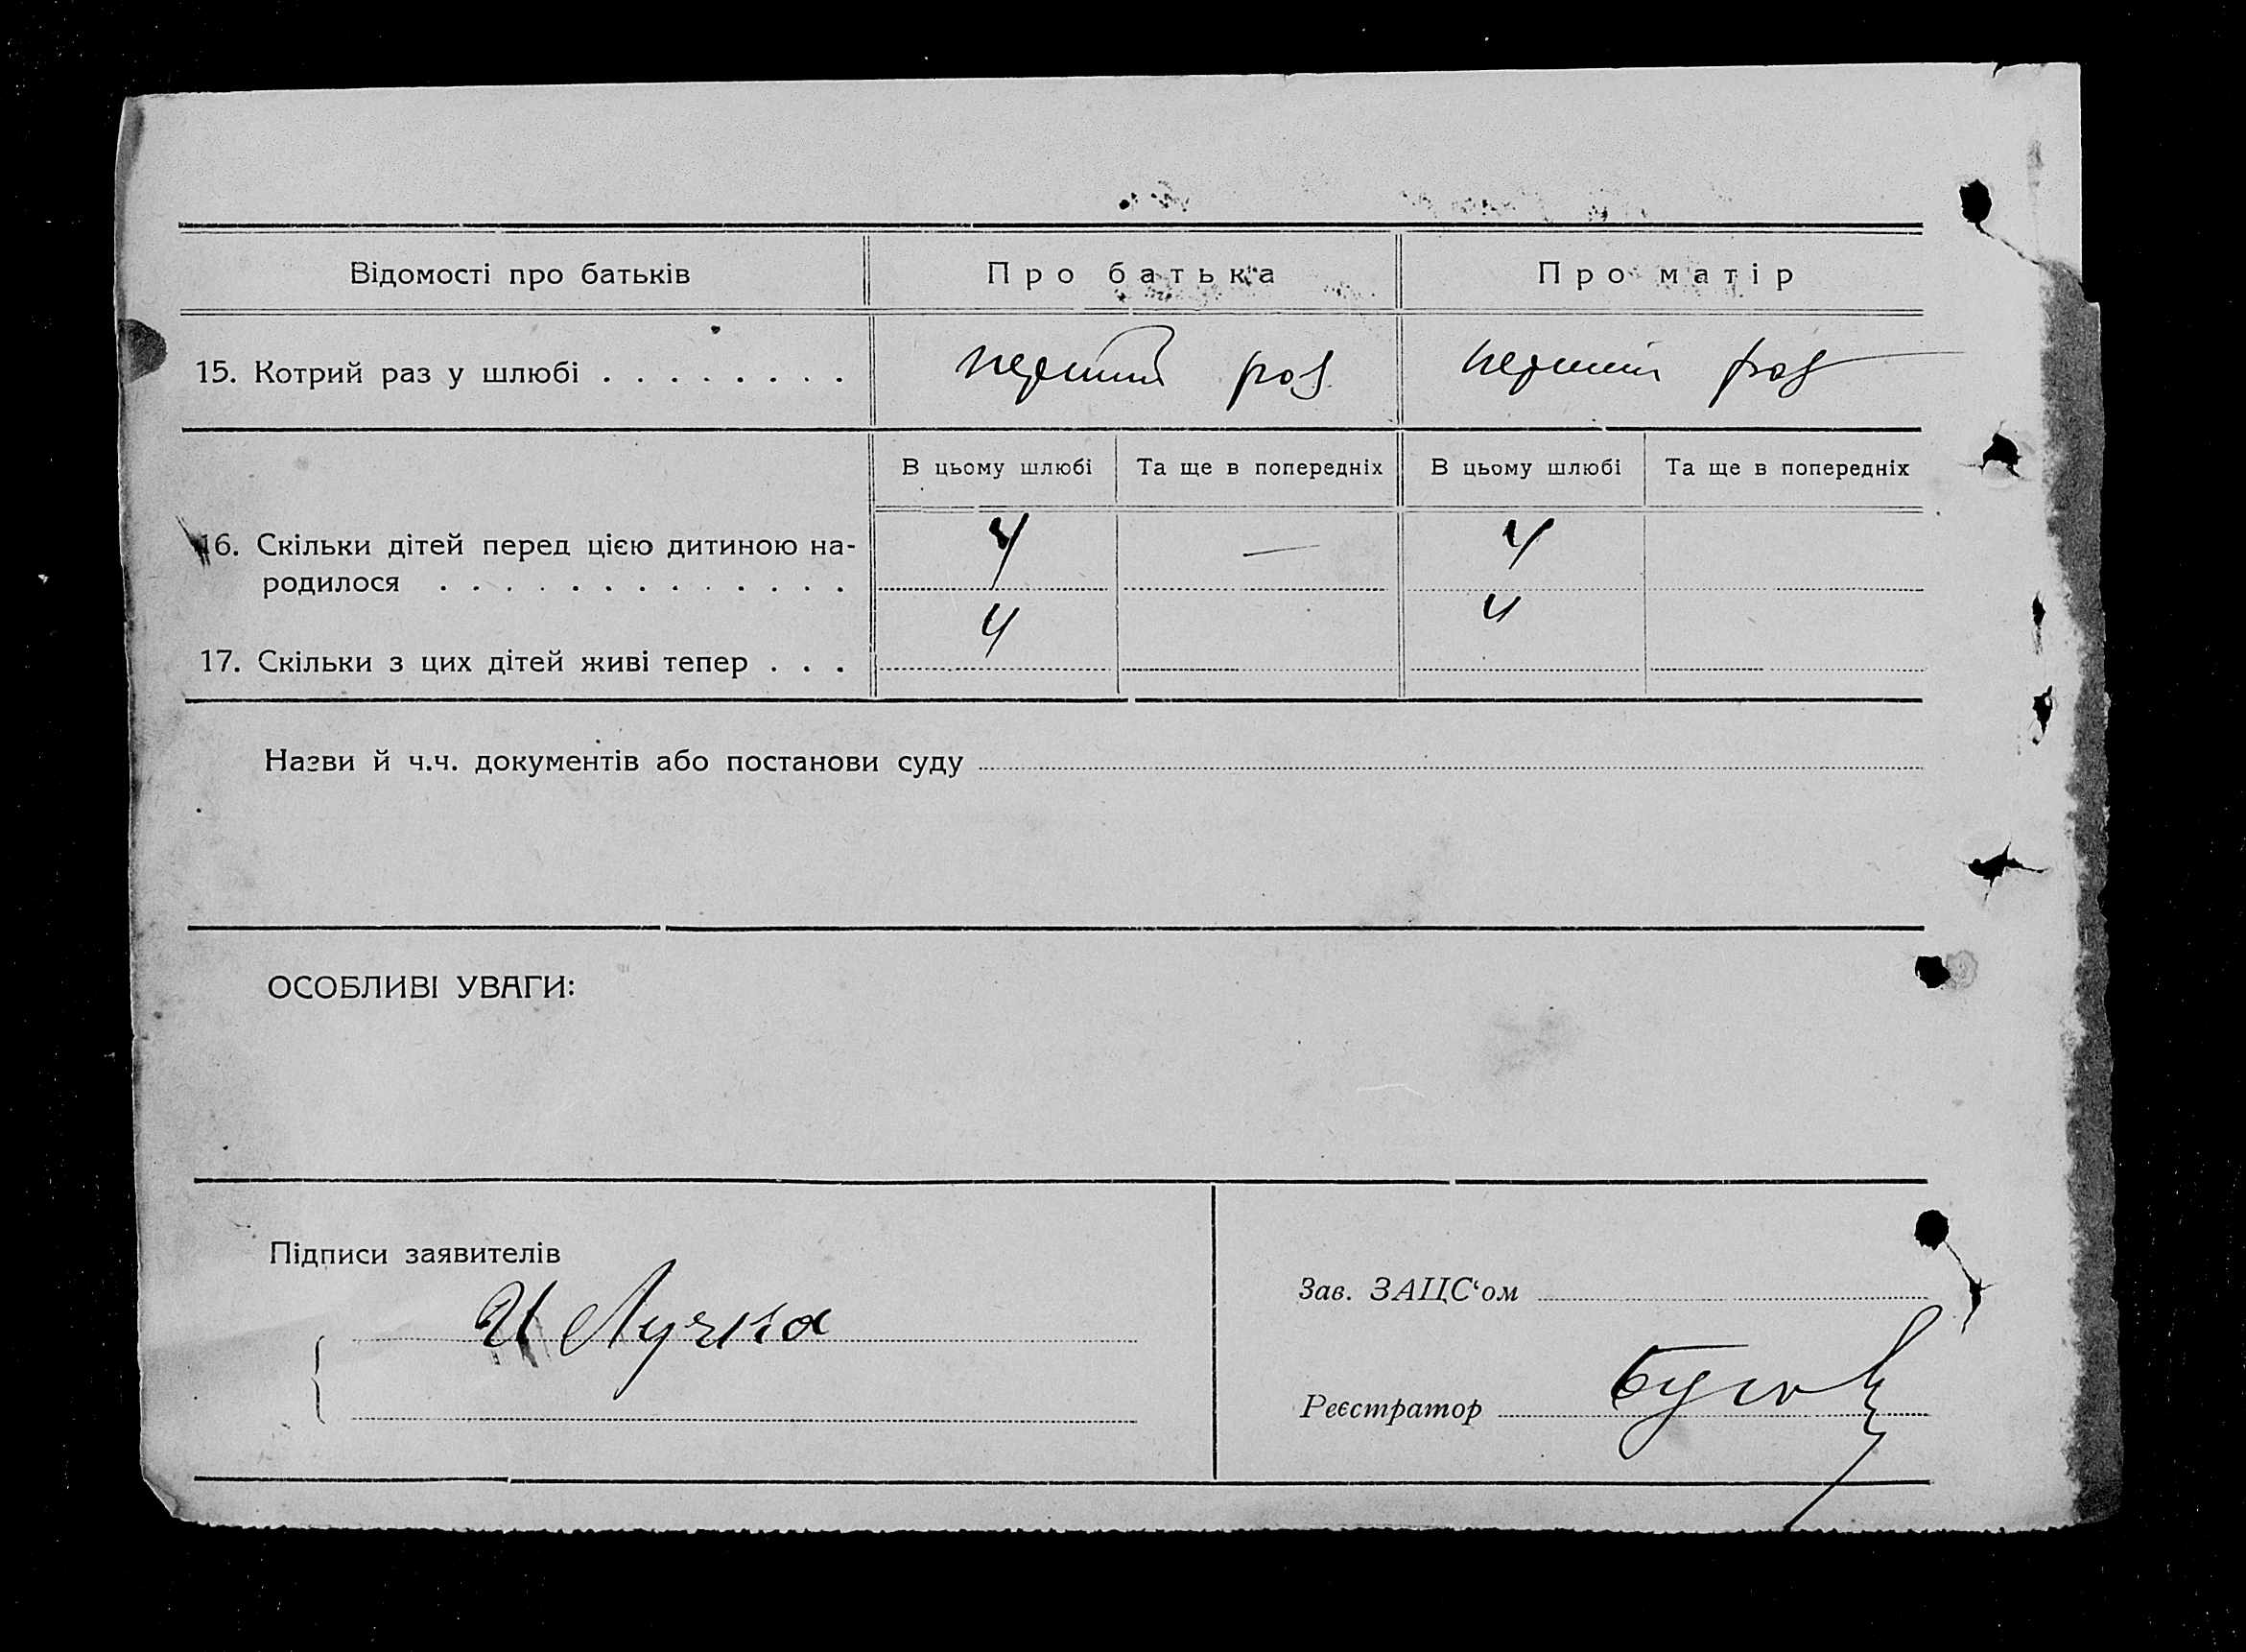 Відомості про батьків Про батька Про матір
15. Котрий раз у шлюбі . . . . . . . . перший раз перший раз
В цьому шлюбі Та ще в попередніх В цьому шлюбі Та ще в попередніх
16. Скільки дітей перед цією дитиною на- 4 — 4
родилося . . . . . . . . . . . . .
4 4
17. Скільки з цих дітей живі тепер . . .
Назви й ч.ч. документів або постанови суду
ОСОБЛИВІ УВАГИ:
Підписи заявителів
Зав. ЗАЦС‘ом
И Лучка
Реєстратор